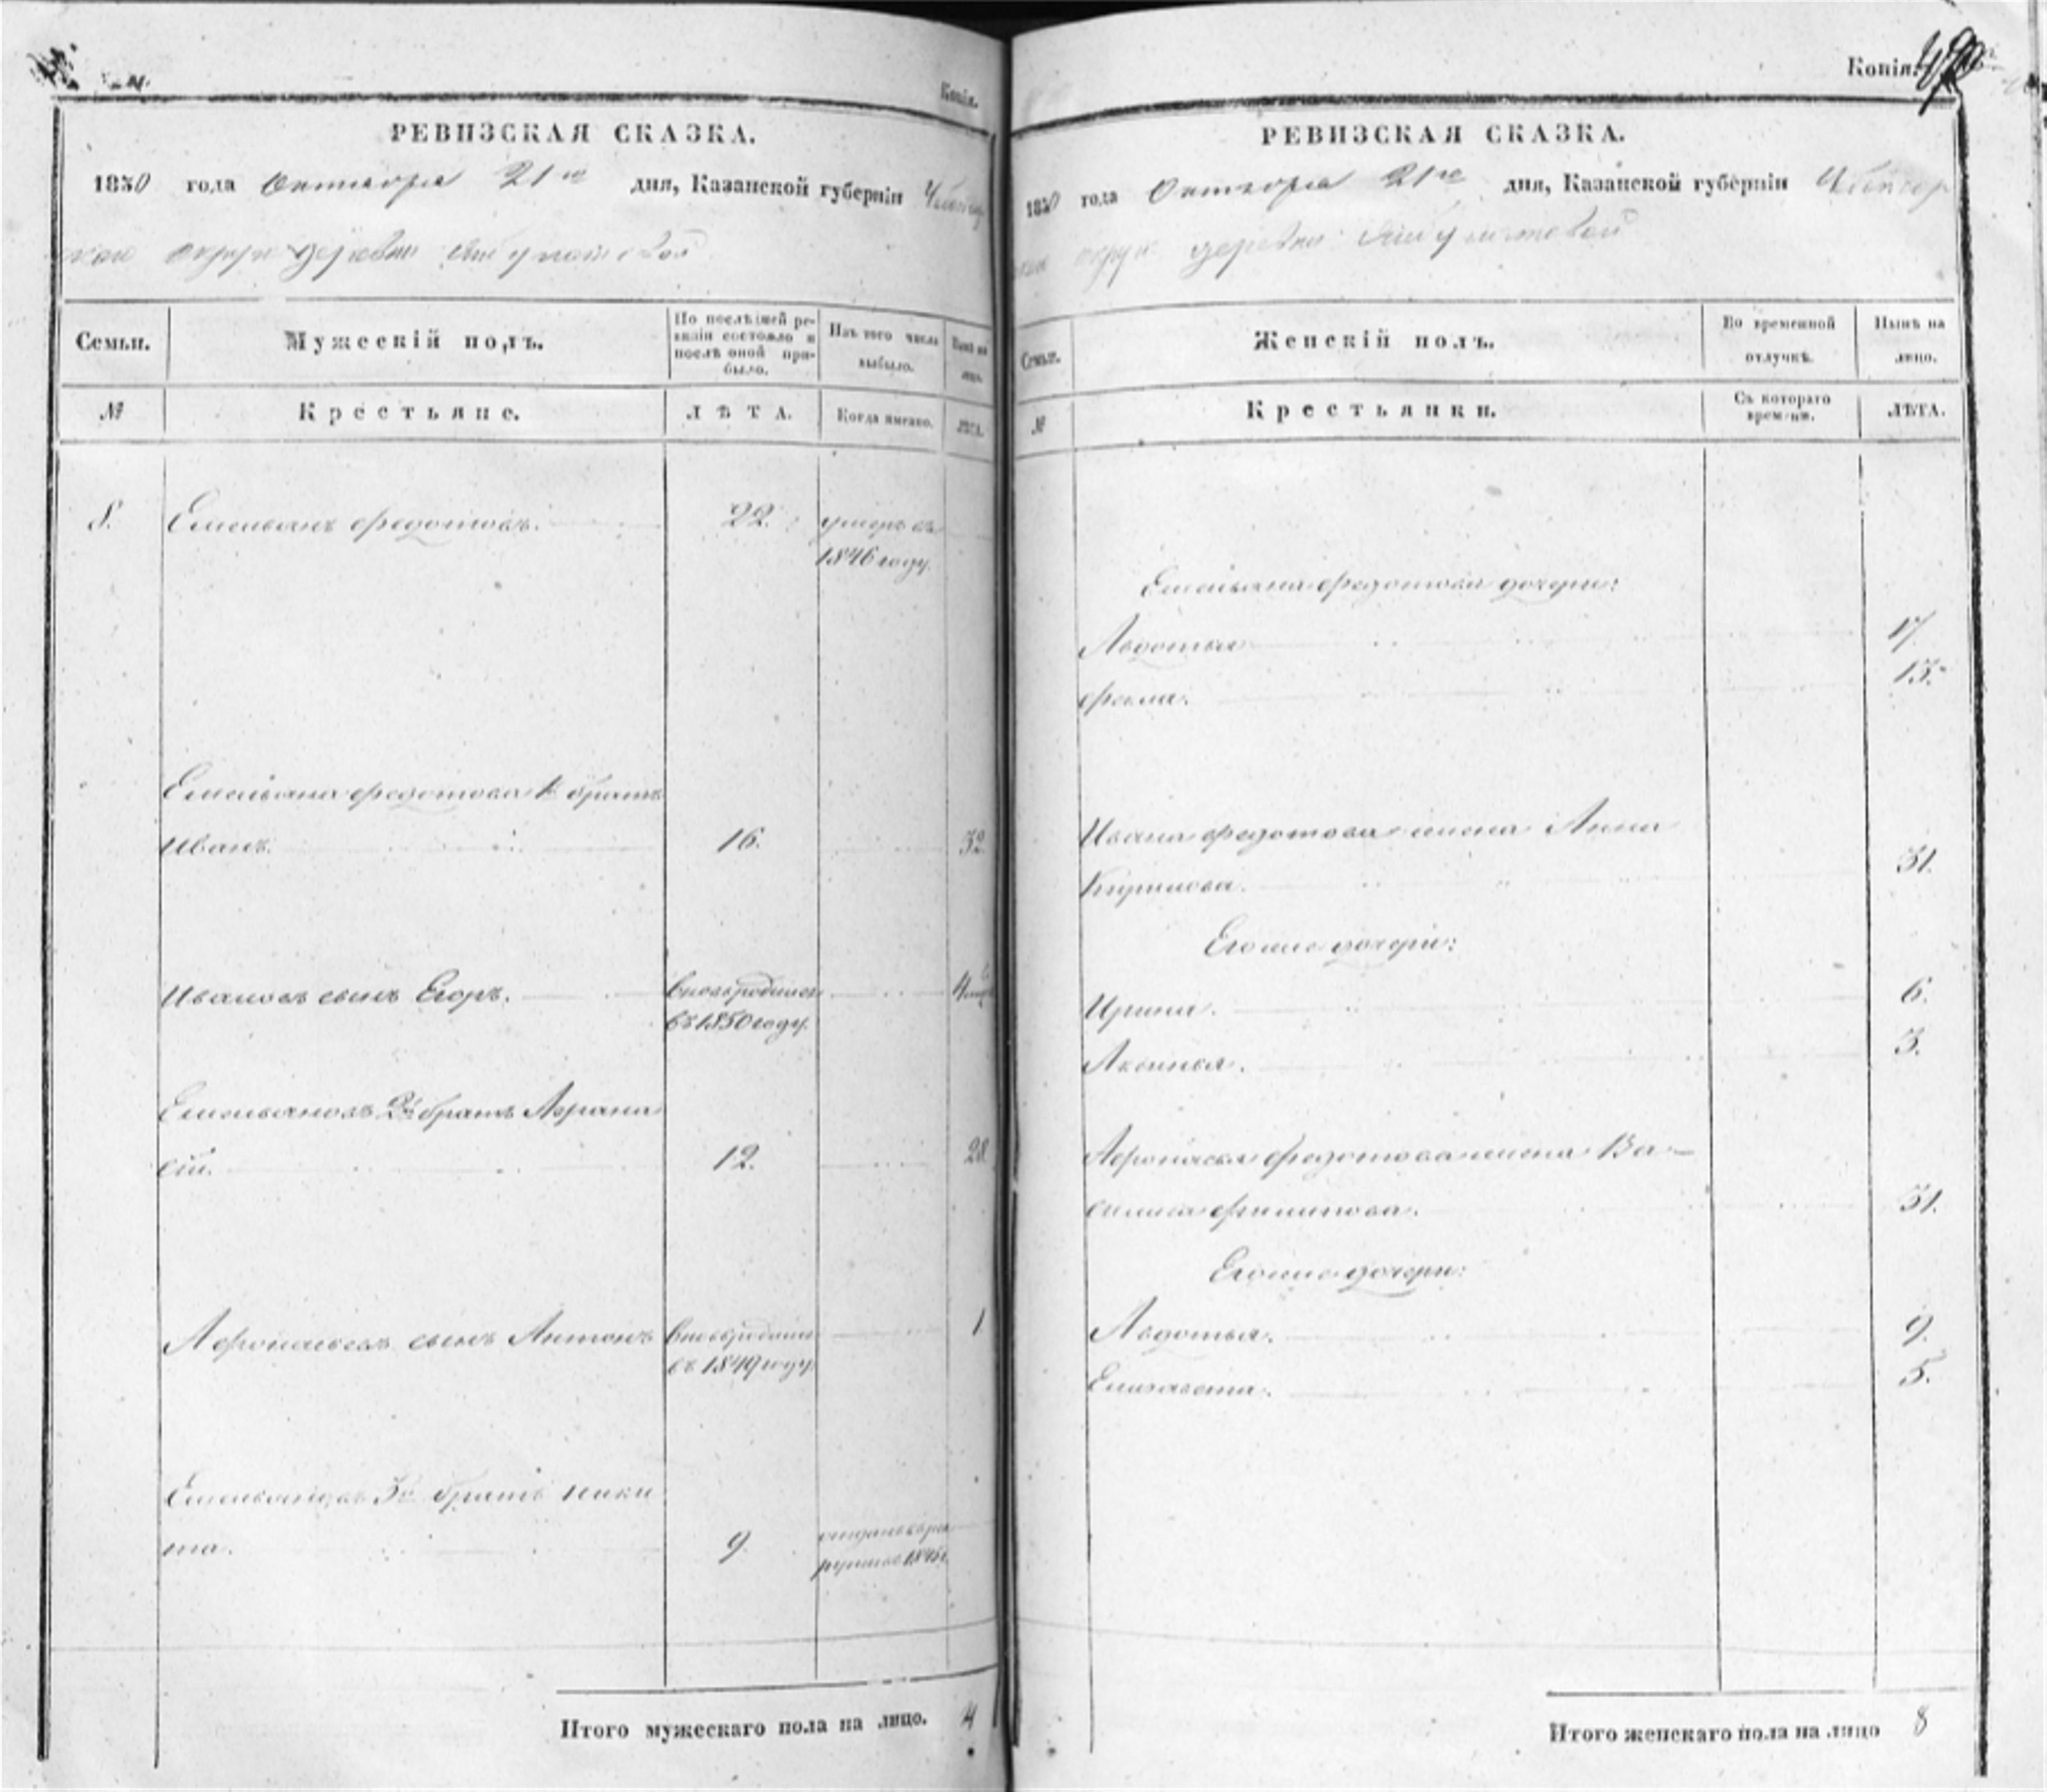 Копія.
РЕВИЗСКАЯ СКАЗКА.
1850 года Октября 21го дня, Казанской губерніи
округи деревни
Семьи.
Мужескій полъ.
По послѣдней ре-
визіи состояло и
послѣ оной при-
было.
Изъ того числа
выбыло.
Нынѣ на
лицо.
№
Крестьяне.
ЛѢТА.
Когда именно.
ЛѢТА.
8. Емельянъ Федотовъ. 22. умеръ въ
1846 году.
Емельяна Федотова 1й братъ
Иванъ. 16. 32
Ивановъ сынъ Егоръ. вновь родился 4
въ 1850 году.
Емельяновъ 2й братъ Афана
сій. 12. 28
Афанасьевъ сынъ Антонъ вновь родился 1
въ 1849 году
Емельяновъ 3й братъ Ники
та. 9.
Итого мужескаго пола на лицо. 4
Копія.
РЕВИЗСКАЯ СКАЗКА.
1850 года Октября 21го дня, Казанской губерніи
округи деревни
Семьи.
Женскій полъ.
Во временной
отлучкѣ.
Нынѣ на
лицо.
№
Крестьянки.
Съ котораго
времени.
ЛѢТА.
Емельяна Федотова дочери:
Авдотья 17.
Фекла. 13.
Ивана Федотова жена Анна
Кирилова. 31.
Его же дочери:
Ирина. 6.
Аксинья. 3.
Афонасья Федотова жена Ва-
силиса Филипова. 31.
Его же дочери:
Авдотья. 9.
Елизавета. 5.
Итого женскаго пола на лицо 8